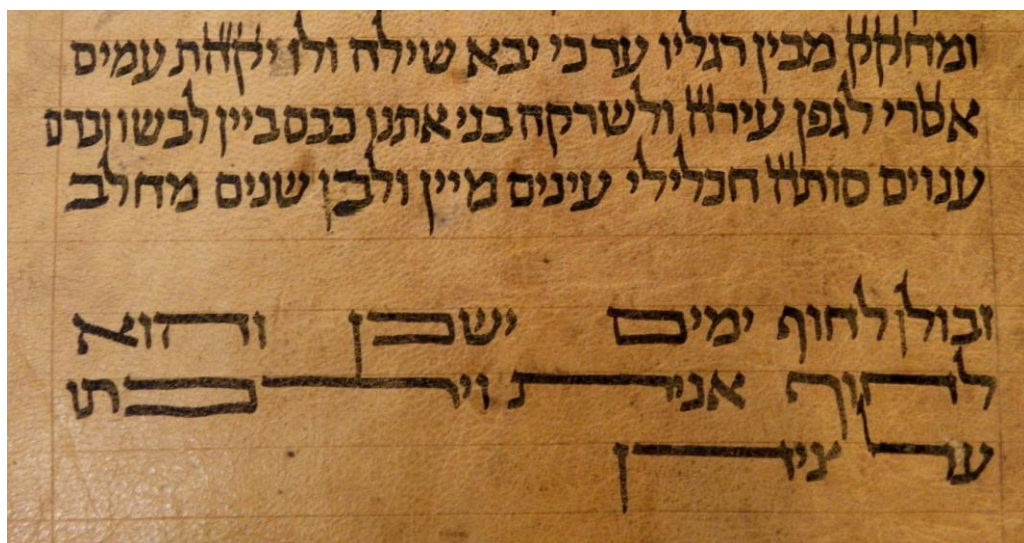 ומחקק מבין רגליו עד כי יבא שילה ולו יקהת עמים
אסרי לגפן עירה ולשרקה בני אתנו כבס ביין לבשו ובדם
ענבים סותה חכלילי עינים מיין ולבן שנים מחלב
זבולן לחוף ימים ישכן והוא
לחוף אנית וירכתו
על צידן